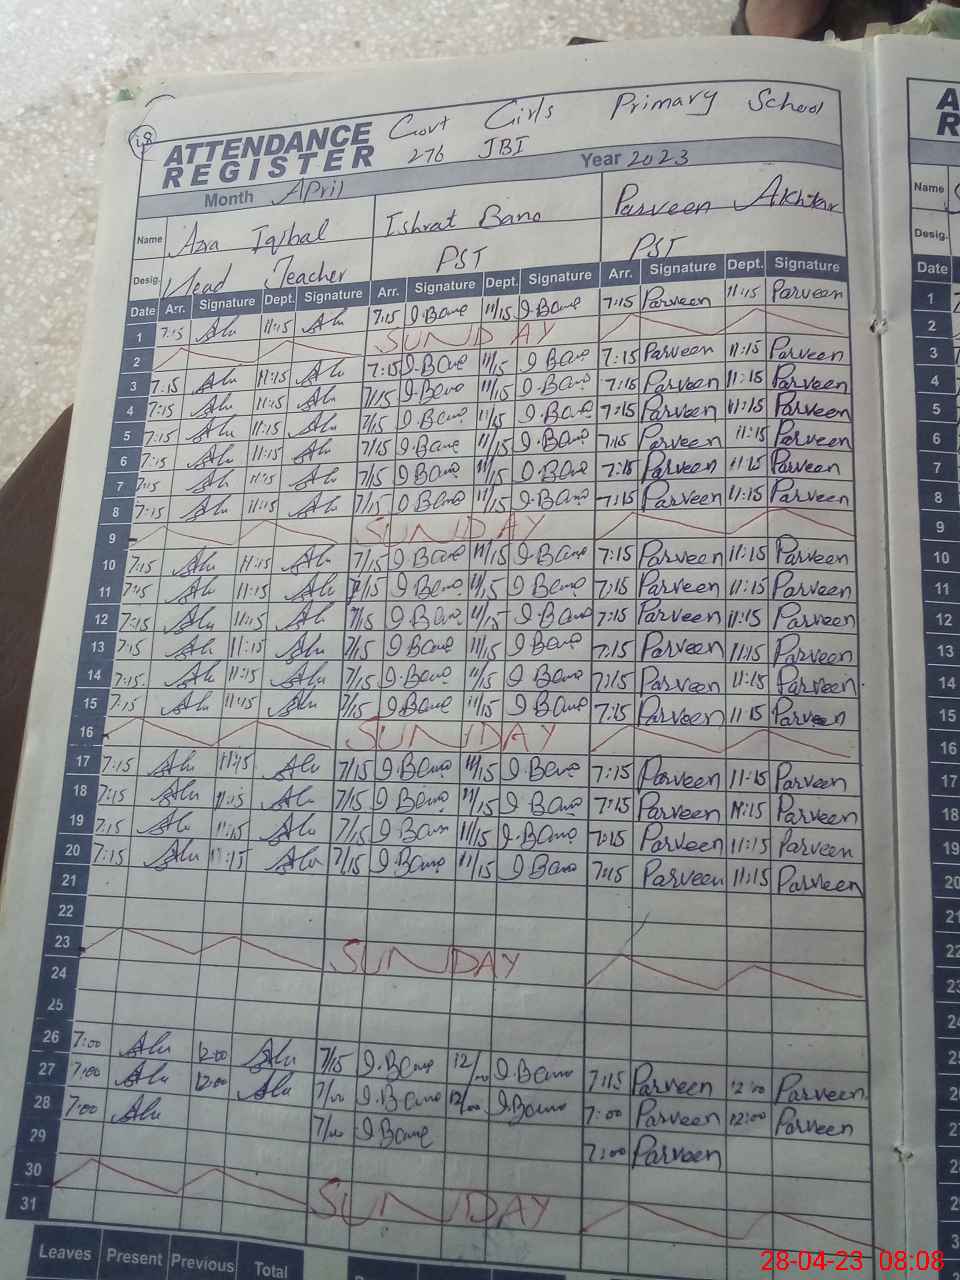 28
ATTENDANCE Govt Girls Primary School
REGISTER 276 JBI
Month April Year 2023
Name Azra Iqbal Ishrat Bano Parveen Akhtar
Desig. Head Teacher PST PST
Date Arr. Signature Dept. Signature Arr. Signature Dept. Signature Arr. Signature Dept. Signature
1 7:15 11:15 7/15 I.Bano 11/15 I.Bano 7:15 Parveen 11:15 Parveen
2 SUNDAY
3 7:15 11:15 7:15 I.Bano 11/15 I Bano 7:15 Parveen 11:15 Parveen
4 7:15 11:15 7/15 I.Bano 11/15 I.Bano 7:15 Parveen 11:15 Parveen
5 7:15 11:15 7/15 I.Bano 11/15 I.Bano 7:15 Parveen 11:15 Parveen
6 7:15 11:15 7/15 I.Bano 11/15 I.Bano 7:15 Parveen 11:15 Parveen
7 7:15 11:15 7/15 I.Bano 11/15 I.Bano 7:15 Parveen 11:15 Parveen
8 7:15 11:15 7/15 I.Bano 11/15 I.Bano 7:15 Parveen 11:15 Parveen
9 SUNDAY
10 7:15 11:15 7/15 I Bano 11/15 I.Bano 7:15 Parveen 11:15 Parveen
11 7:15 11:15 7/15 I.Bano 11/15 I.Bano 7:15 Parveen 11:15 Parveen
12 7:15 11:15 7/15 I.Bano 11/15 I.Bano 7:15 Parveen 11:15 Parveen
13 7:15 11:15 7/15 I.Bano 11/15 I.Bano 7:15 Parveen 11:15 Parveen
14 7:15 11:15 7/15 I.Bano 11/15 I.Bano 7:15 Parveen 11:15 Parveen
15 7:15 11:15 7/15 I.Bano 11/15 I.Bano 7:15 Parveen 11:15 Parveen
16 SUNDAY
17 7:15 11:15 7/15 I.Bano 11/15 I.Bano 7:15 Parveen 11:15 Parveen
18 7:15 11:15 7/15 I.Bano 11/15 I.Bano 7:15 Parveen 11:15 Parveen
19 7:15 11:15 7/15 I.Bano 11/15 I.Bano 7:15 Parveen 11:15 Parveen
20 7:15 11:15 7/15 I.Bano 11/15 I.Bano 7:15 Parveen 11:15 Parveen
21
22
23 SUNDAY
24
25
26 7:00 12:00 7/15 I.Bano 12/00 I.Bano 7:15 Parveen 12:00 Parveen
27 7:00 12:00 7/00 I.Bano 12/00 I.Bano 7:00 Parveen 12:00 Parveen
28 7:00 7/00 I.Bano 7:00 Parveen
29
30 SUNDAY
31
Leaves Present Previous Total
Name
Desig.
Date
1
2
3
4
5
6
7
8
9
10
11
12
13
14
15
16
17
18
19
20
21
22
23
24
28-04-23 08:08